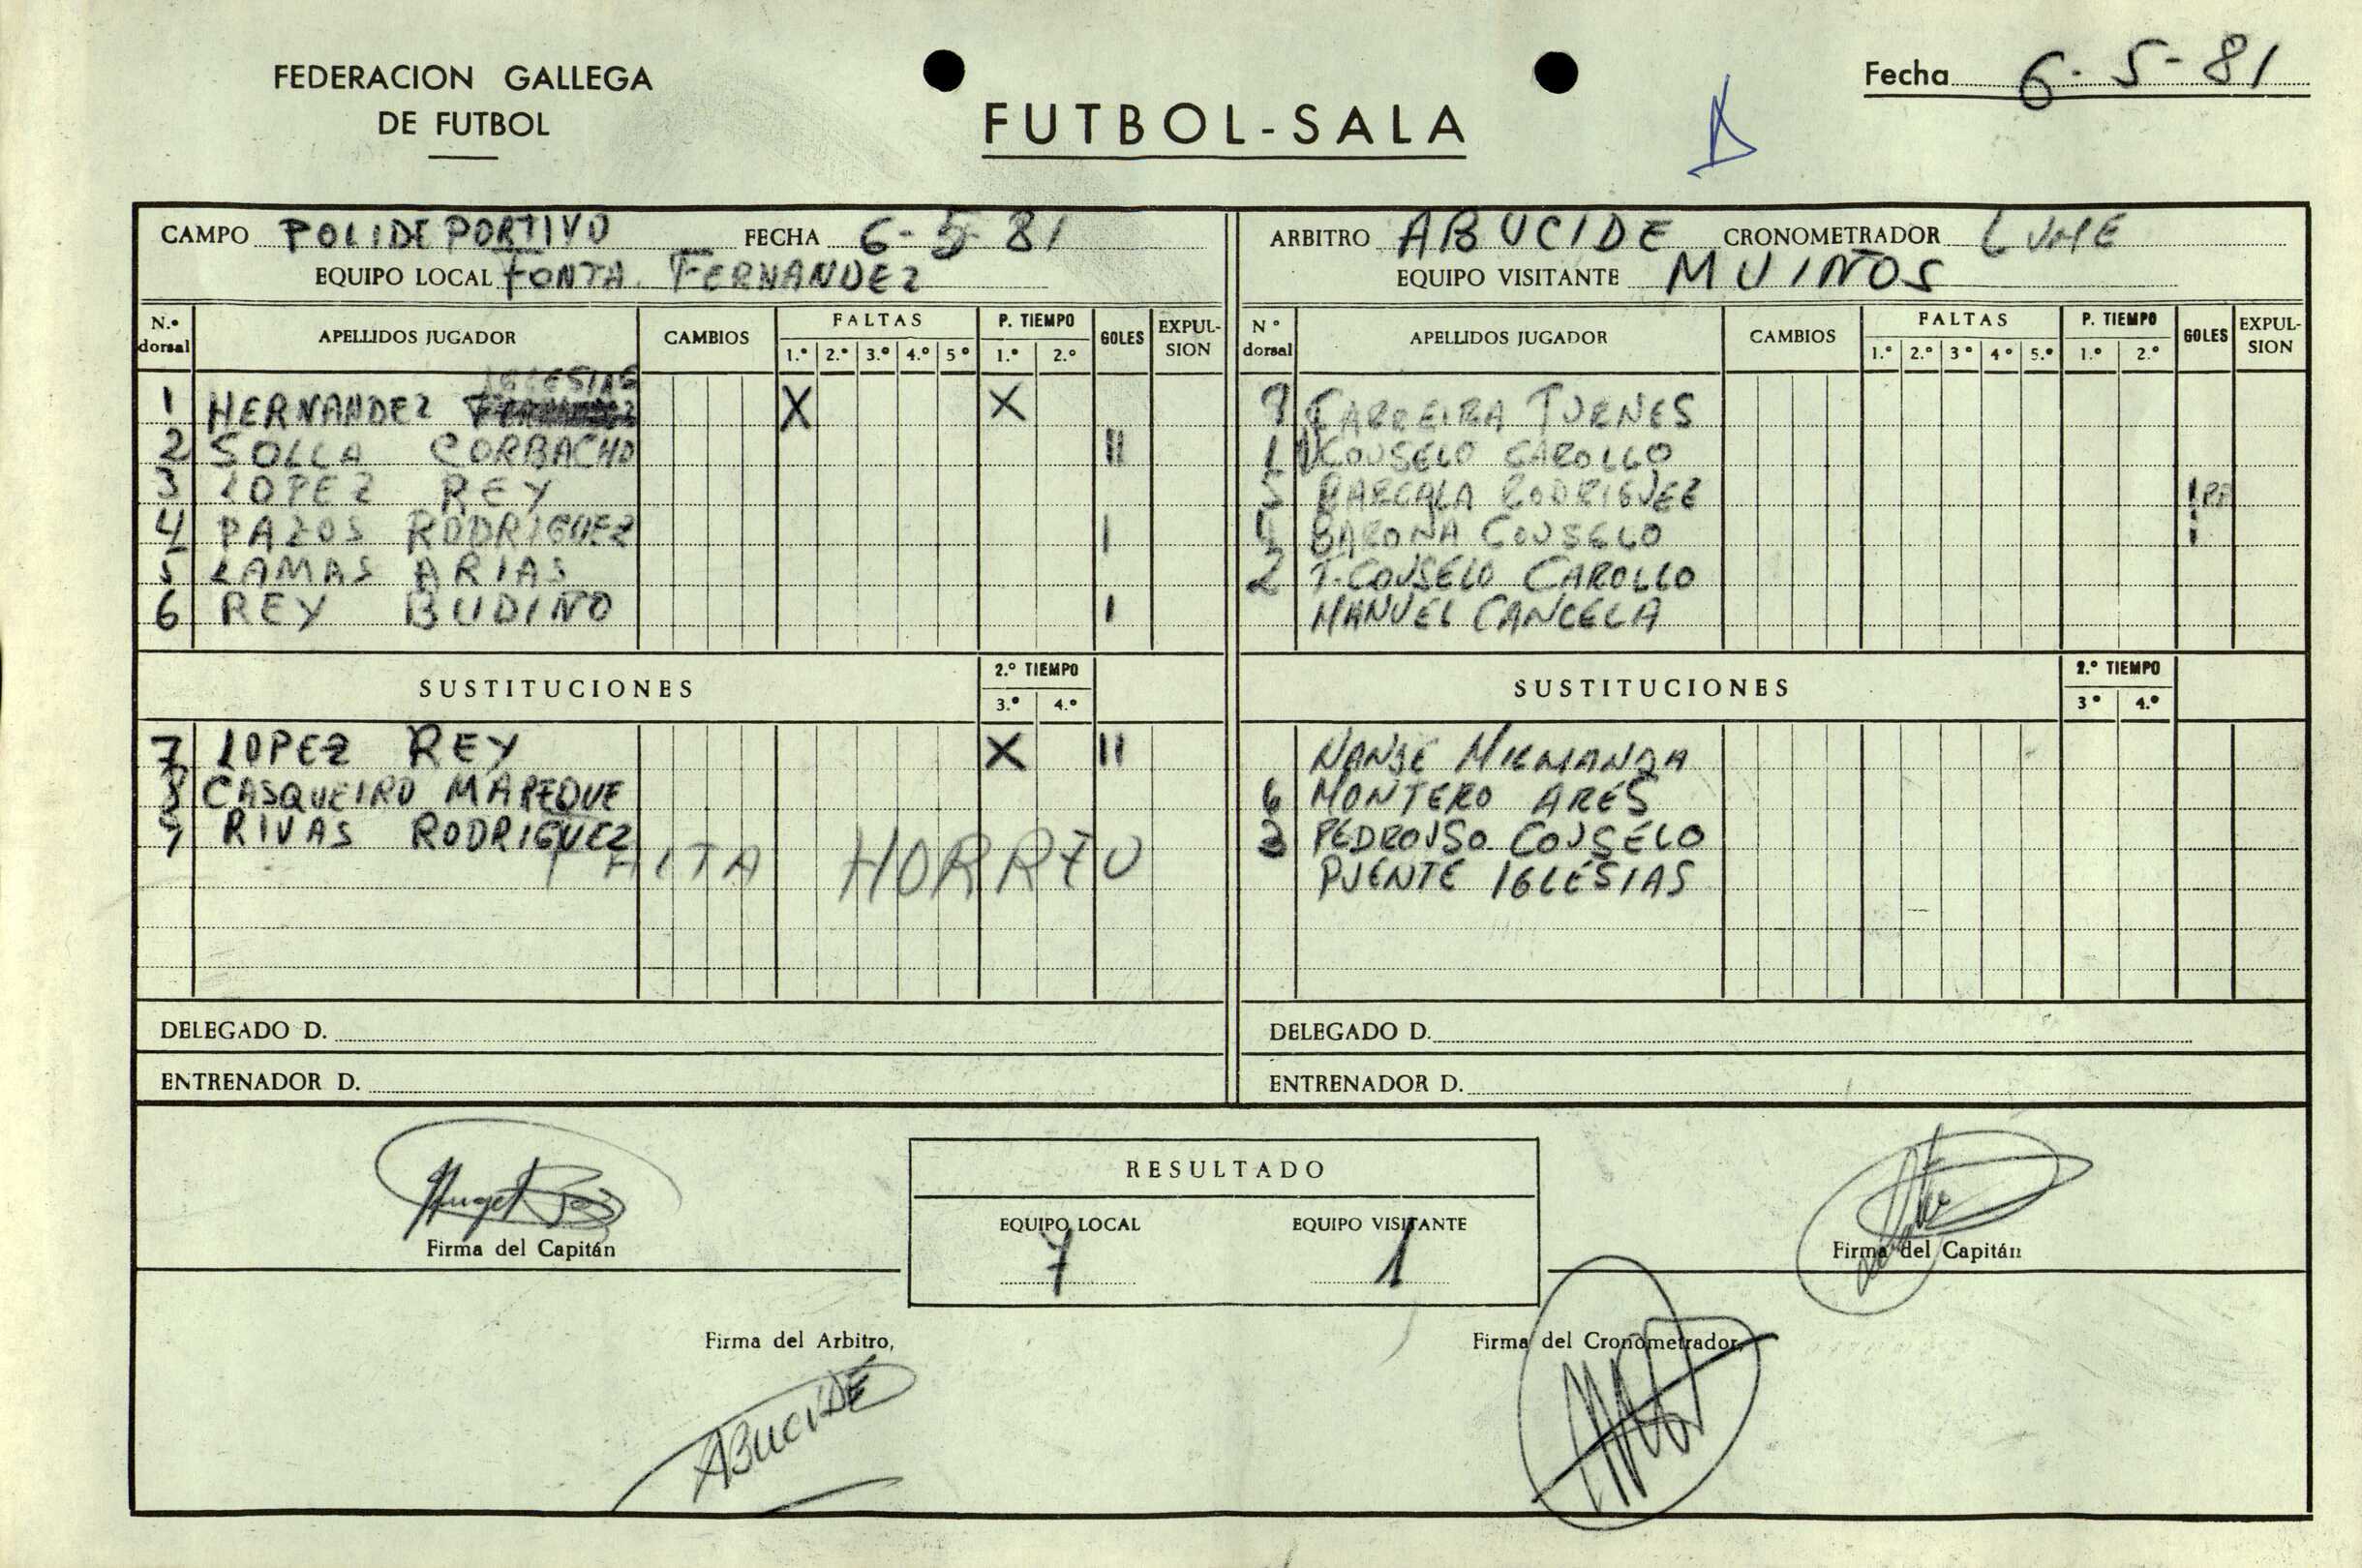 FEDERACION GALLEGA
DE FUTBOL
FUTBOL-SALA
Fecha 6-5-81
CAMPO POLIDEPORTIVO FECHA 6-5-81
EQUIPO LOCAL FONTA. FERNANDEZ
N.º dorsal APELLIDOS JUGADOR CAMBIOS FALTAS 1.º 2.º 3.º 4.º 5º P. TIEMPO 1.º 2.º GOLES EXPULSION
IGLESIAS
1 HERNANDEZ X X
2 SOLLA CORBACHO II
3 LOPEZ REY
4 PAZOS RODRIGUEZ I
5 LAMAS ARIAS
6 REY BUDIÑO I
SUSTITUCIONES 2.º TIEMPO 3.º 4.º
7 LOPEZ REY X II
8 CASQUEIRO MAREQUE
9 RIVAS RODRIGUEZ
FALTA HORREO
DELEGADO D.
ENTRENADOR D.
ARBITRO ABUCIDE CRONOMETRADOR LUME
EQUIPO VISITANTE MUIÑOS
Nº dorsal APELLIDOS JUGADOR CAMBIOS FALTAS 1.º 2.º 3º 4º 5.º P. TIEMPO 1.º 2.º GOLES EXPULSION
FARREIRA TURNES
COUSELO CAROLLO
5 BARCALA RODRIGUEZ
BARONA COUSELO
2 T. COUSELO CAROLLO
MANUEL CANCELA
SUSTITUCIONES 2.º TIEMPO 3º 4.º
6 MONTERO ARES
3 PEDROUSO COUSELO
PUENTE IGLESIAS
DELEGADO D.
ENTRENADOR D.
Firma del Capitán
RESULTADO
EQUIPO LOCAL EQUIPO VISITANTE
7 1
Firma del Capitán
Firma del Arbitro,
ABUCIDE
Firma del Cronometrador,